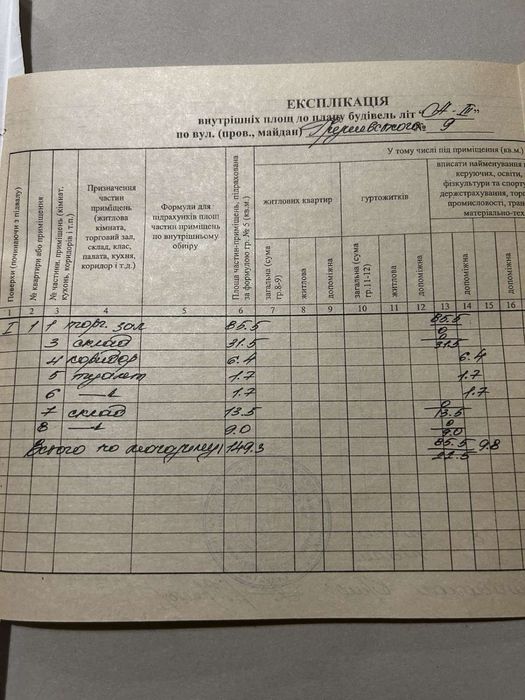 ЕКСПЛІКАЦІЯ
внутрішніх площ до плану будівель літ "А-III"
по вул. (пров., майдан) № 9
У тому числі під приміщення (кв.м.)
Поверхи (починаючи з підвалу)
№ квартири або приміщення
№ частини, приміщень (кімнат, кухонь, коридорів і т.п.)
Призначення частин приміщень (житлова кімната, торговий зал, склад, клас, палата, кухня, коридор і т.д.)
Формули для підрахунків площ частин приміщень по внутрішньому обміру
Площа частин-приміщень, підрахована за формулою гр. № 5 (кв.м.)
житлових квартир
загальна (сума гр.8-9)
житлова
допоміжна
гуртожитків
загальна (сума гр.11-12)
житлова
допоміжна
вписати найменування
керуючих, освіти,
фізкультури та спорту
держстрахування, торг
промисловості, тран
матеріально-тех
допоміжна
допоміжна
1 2 3 4 5 6 7 8 9 10 11 12 13 14 15 16
I 1 1 торг. зал 85.5 85.5 0
3 склад 31.5 0 31.5
4 коридор 6.4 6.4
5 туалет 1.7 1.7
6 —"— 1.7 1.7
7 склад 13.5 0 13.5
8 —"— 9.0 0 9.0
Всього по 149.3 85.5 9.8